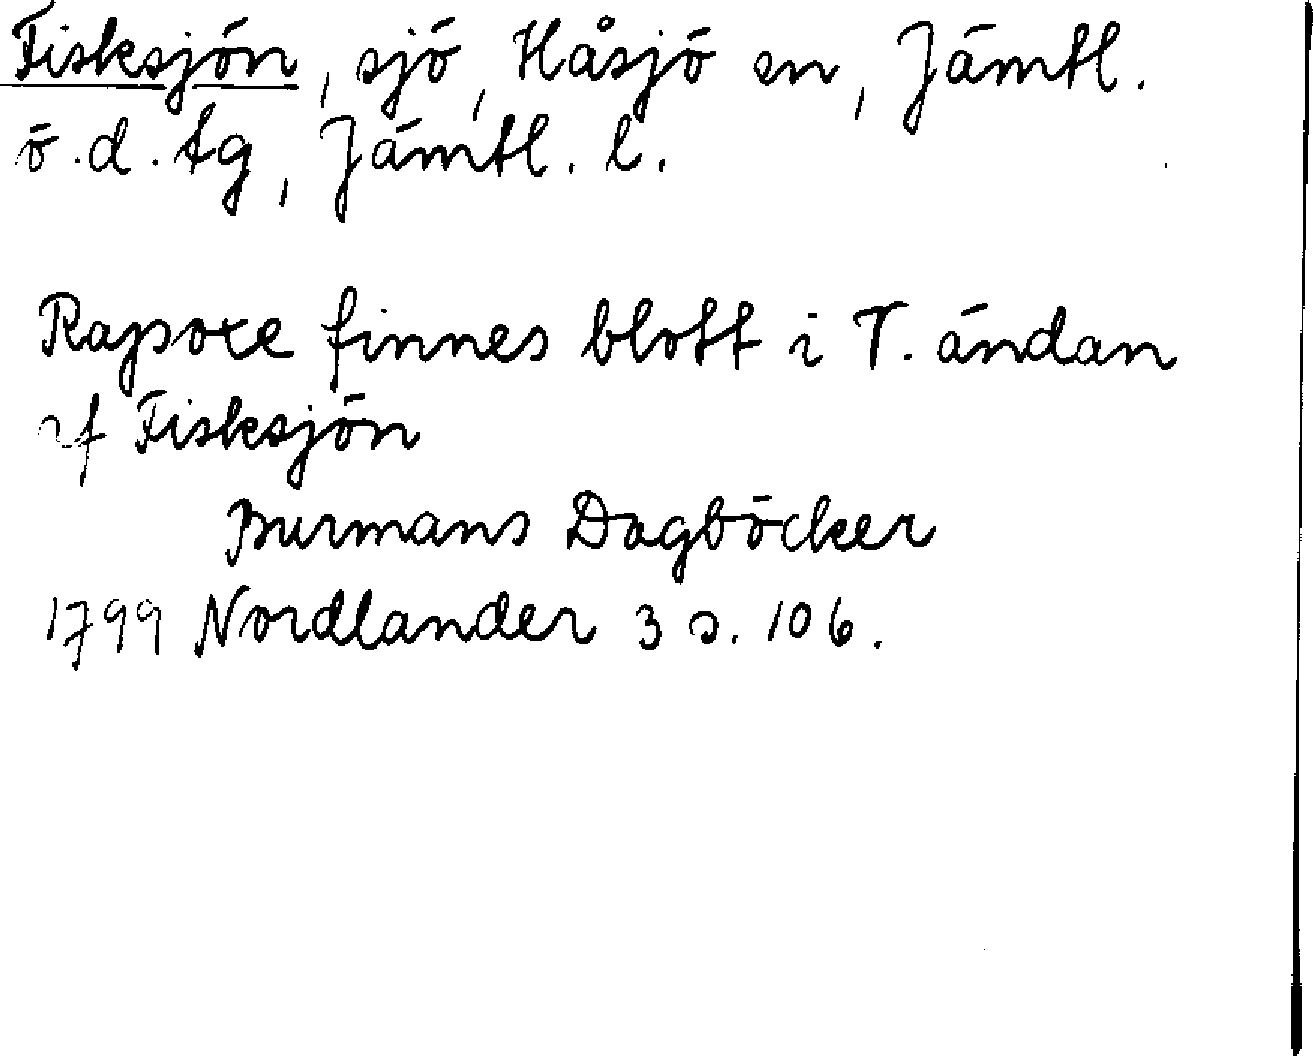 Fisksjön, sjö, Håsjö sn, Jämtl.
ö.d. tg, Jämtl. l.
finnes blott i T. ändan
af Fisksjön
Burmans Dagböcker
1799 Nordlander 3 s. 106.